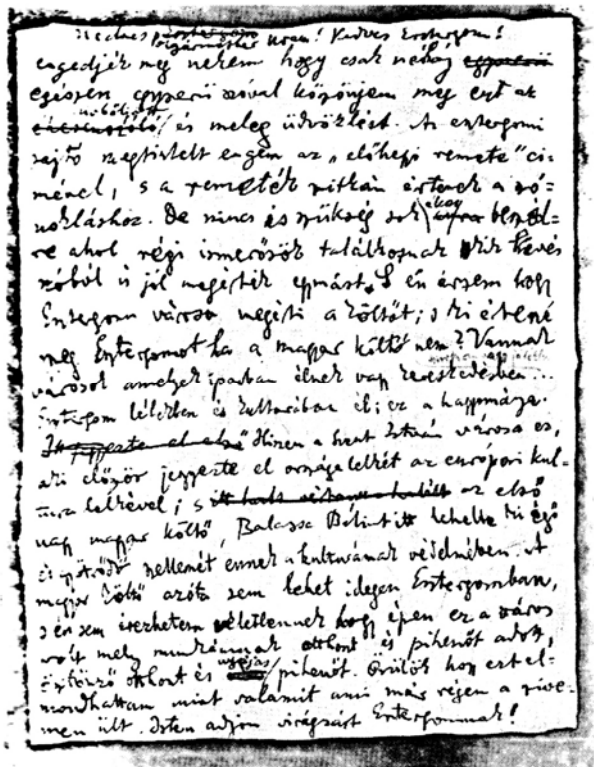 Kedves Polgármester Uram! Kedves Esztergom!
engedjék meg nekem hogy csak néhány egyszerű
egészen egyszerű szóval köszönjem meg ezt az
és meleg üdvözlést. Az esztergomi
sajtó megtisztelt engem az „előhegyi remete" cí-
mével, s a remeték ritkán értenek a szó-
nokláshoz. De nincs is szükség sok beszéd-
re ahol régi ismerősök találkoznak kik kevés
szóból is jól megértik egymást. S én érzem hogy
Esztergom városa megérti a költőt; s ki értené
meg Esztergomot ha a magyar költő nem? Vannak
városok amelyek iparban élnek vagy kereskedésben...
Esztergom lélekben és kultúrában él; ez a hagyománya.
Hiszen a Szent István városa ez,
aki először jegyezte el országa lelkét az európai kul-
túra lelkével; s az első
nagy magyar költő, Balassa Bálint itt lehelte ki égő
és szellemét ennek a kultúrának védelmében. A
magyar költő azóta sem lehet idegen Esztergomban,
s én sem érezhetem véletlennek hogy épen ez a város
volt mely munkámnak otthont és pihenőt adott,
ösztönző otthont és nyájas pihenőt. Örülök hogy ezt el-
mondhattam mint valamit ami már régen a szíve-
men ült. Isten adjon virágzást Esztergomnak!